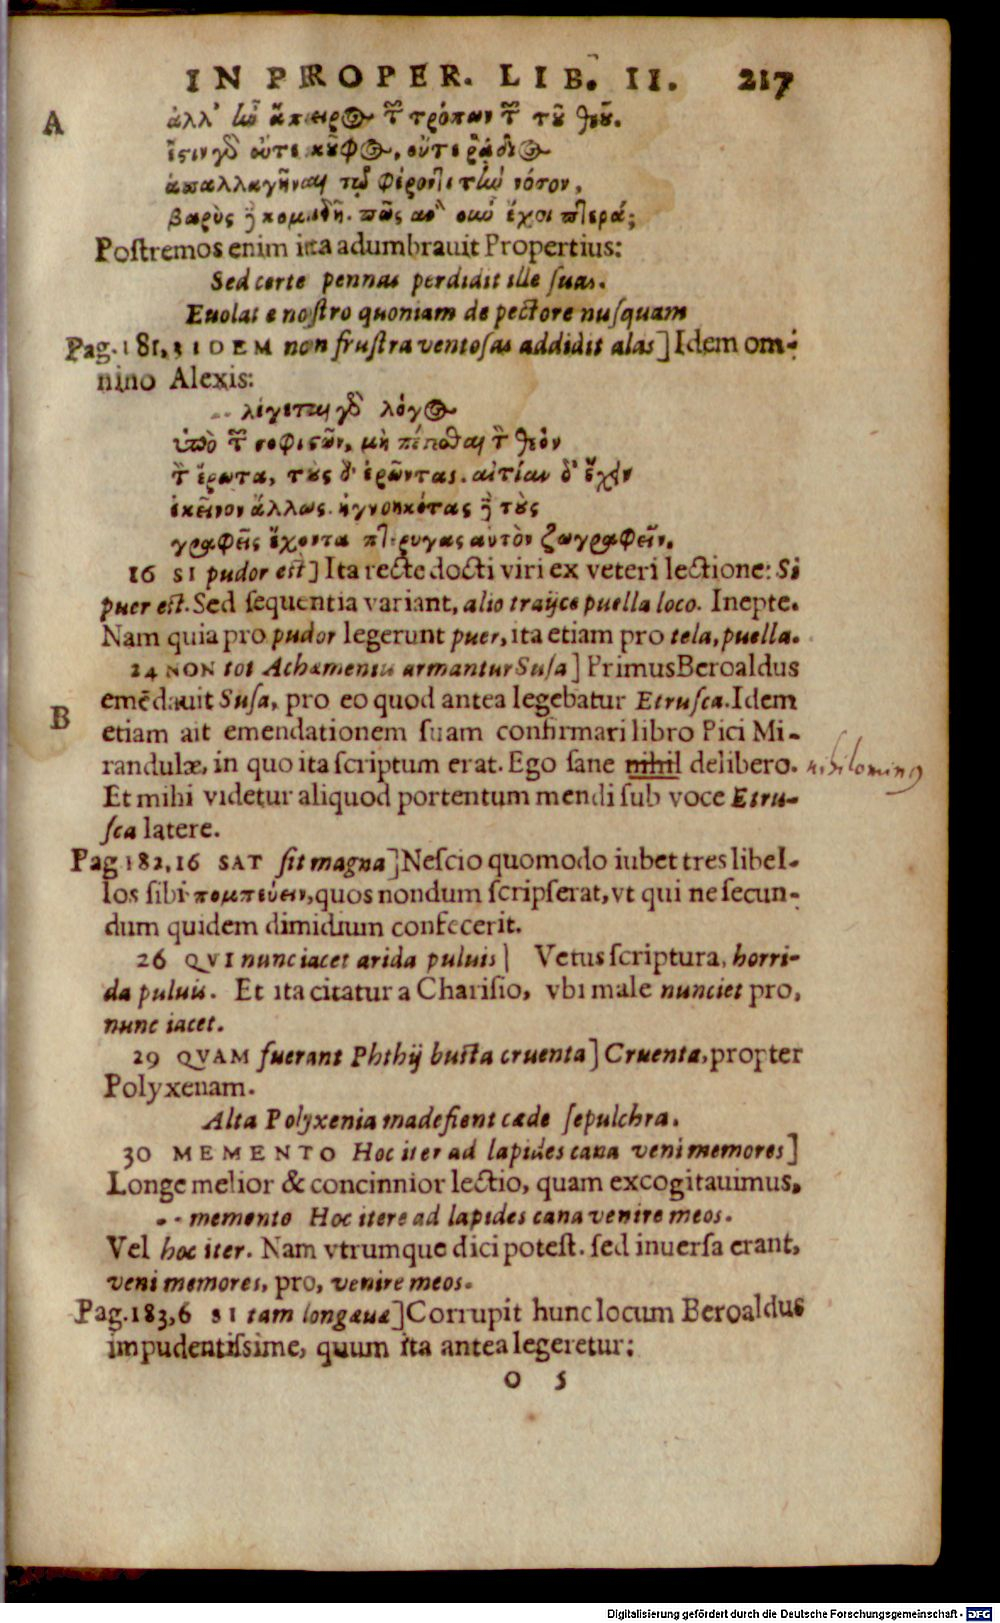 IN PROPER. LIB. II. 217
A
ἀλλ' ἦν ἄπειρος τῶν τρόπων τῶν τοῦ θεοῦ.
ἔστιν γὰρ οὔτε κοῦφος, οὔτε ῥᾴδιος
ἀπαλλαγῆναι τῷ φέροντι τὴν νόσον,
βαρὺς δὲ κομιδῆ. πῶς ἂν οὖν ἔχοι πτερά;
Postremos enim ita adumbrauit Propertius:
Sed certe pennas perdidit ille suas.
Euolat e nostro quoniam de pectore nusquam
Pag. 181, 5 IDEM non frustra ventosas addidit alas] Idem om-
nino Alexis:
-- λέγεται γὰρ λόγος
ὑπὸ τῶν σοφιστῶν, μὴ πέτεσθαι τὸν θεὸν
τὸν ἔρωτα, τοὺς δ' ἐρῶντας. αἰτίαν δ' ἔχειν
ἐκεῖνον ἄλλως. ἠγνοηκότας δὲ τοὺς
γραφεῖς ἔχοντα πτέρυγας αὐτὸν ζωγραφεῖν.
16 SI pudor est] Ita recte docti viri ex veteri lectione: Si
puer est. Sed sequentia variant, alio traijce puella loco. Inepte.
Nam quia pro pudor legerunt puer, ita etiam pro tela, puella.
24 NON tot Achæmeniis armantur Susa] Primus Beroaldus
B
emēdauit Susa, pro eo quod antea legebatur Etrusca. Idem
etiam ait emendationem suam confirmari libro Pici Mi-
randulæ, in quo ita scriptum erat. Ego sane nihil delibero. nihilominus
Et mihi videtur aliquod portentum mendi sub voce Etru-
sca latere.
Pag. 182, 16 SAT sit magna] Nescio quomodo iubet tres libel-
los sibi πομπεύειν, quos nondum scripserat, vt qui ne secun-
dum quidem dimidium confecerit.
26 QVI nunc iacet arida puluis] Vetus scriptura, horri-
da puluis. Et ita citatur a Charisio, vbi male nunciet pro,
nunc iacet.
29 QVAM fuerant Phthij busta cruenta] Cruenta, propter
Polyxenam.
Alta Polyxenia madefient cæde sepulchra.
30 MEMENTO Hoc iter ad lapides cana veni memores]
Longe melior & concinnior lectio, quam excogitauimus.
-- memento Hoc itere ad lapides cana venire meos.
Vel hoc iter. Nam vtrumque dici potest. sed inuersa erant,
veni memores, pro, venire meos.
Pag. 183, 6 SI tam longæuæ] Corrupit hunc locum Beroaldus
impudentissime, quum ita antea legeretur:
O 5
Digitalisierung gefördert durch die Deutsche Forschungsgemeinschaft - DFG